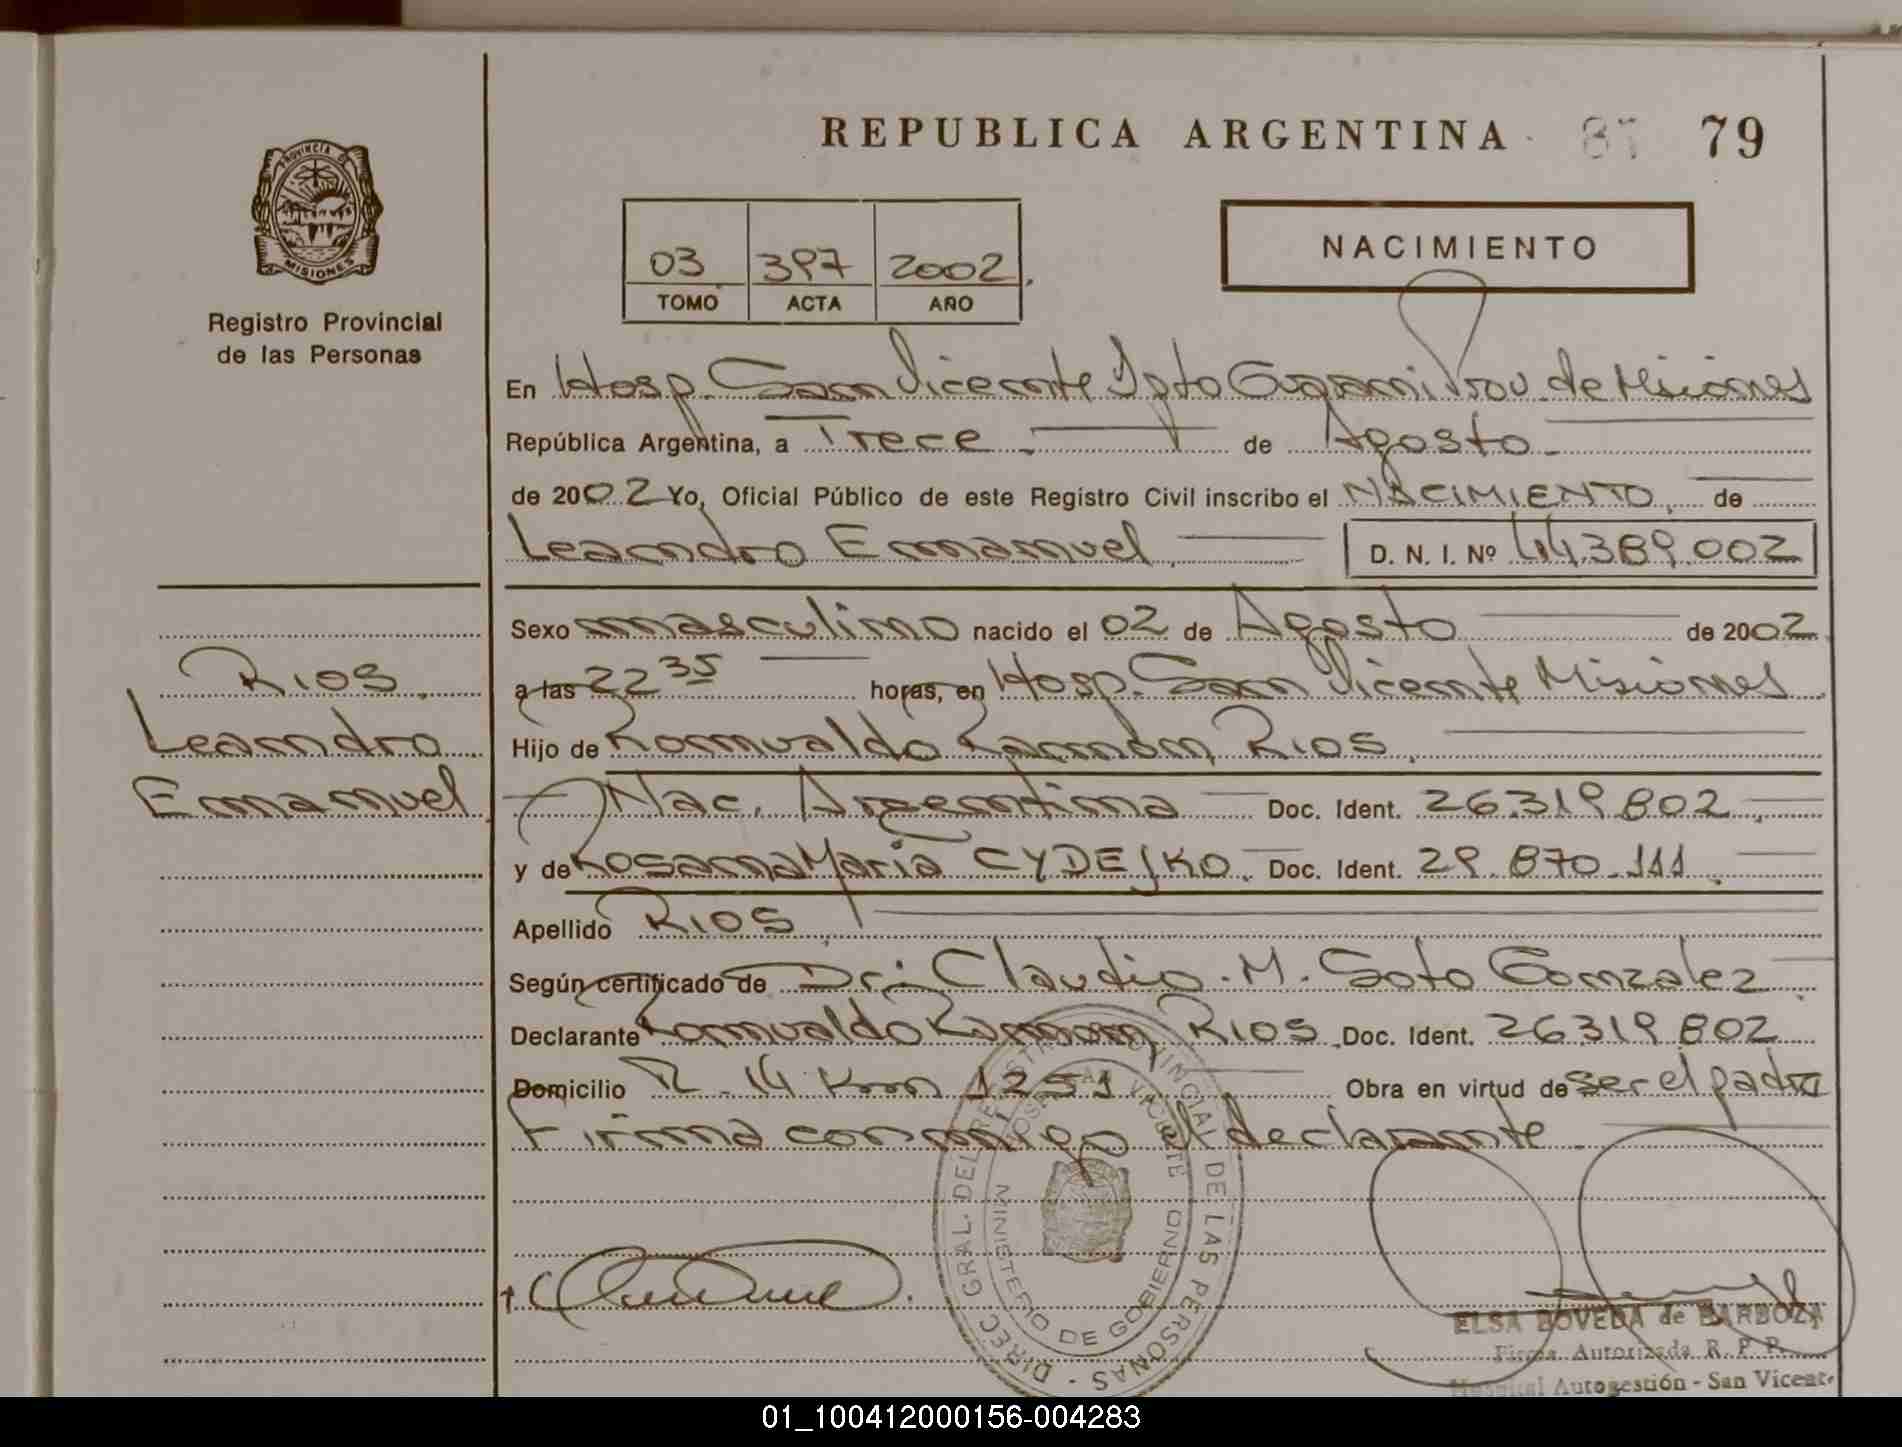 REPUBLICA ARGENTINA 87 79
PROVINCIA DE
MISIONES
Registro Provincial
de las Personas
03 397 2002
TOMO ACTA AÑO
NACIMIENTO
En Hosp. San Vicente Dpto Guarani Prov. de Misiones
República Argentina, a Trece de Agosto
de 2002 Yo, Oficial Público de este Registro Civil inscribo el NACIMIENTO de
Leandro Emmanuel D. N. I. Nº 44.389.002
Sexo masculino nacido el 02 de Agosto de 2002
a las 22 35 horas, en Hosp. San Vicente Misiones
Hijo de Romualdo Ramón Rios
Nac. Argentina Doc. Ident. 26.319.802
y de Rosana Maria CYDEJKO. Doc. Ident. 29.870.111
Apellido RIOS
Según certificado de Dr: Claudio M. Soto Gonzalez
Declarante Romualdo Ramon Rios Doc. Ident. 26319802
Domicilio R. 14 Km 1251 Obra en virtud de ser el padre
Firma conmigo el declarante
RIOS
Leandro
Emmanuel
DIREC. GRAL. DEL REGISTRO PROVINCIAL DE LAS PERSONAS
HOSPITAL SAN VICENTE
MINISTERIO DE GOBIERNO
ELSA BOVEDA de BARBOZA
Firma Autorizada R. P. P.
Hospital Autogestión - San Vicente
01_100412000156-004283